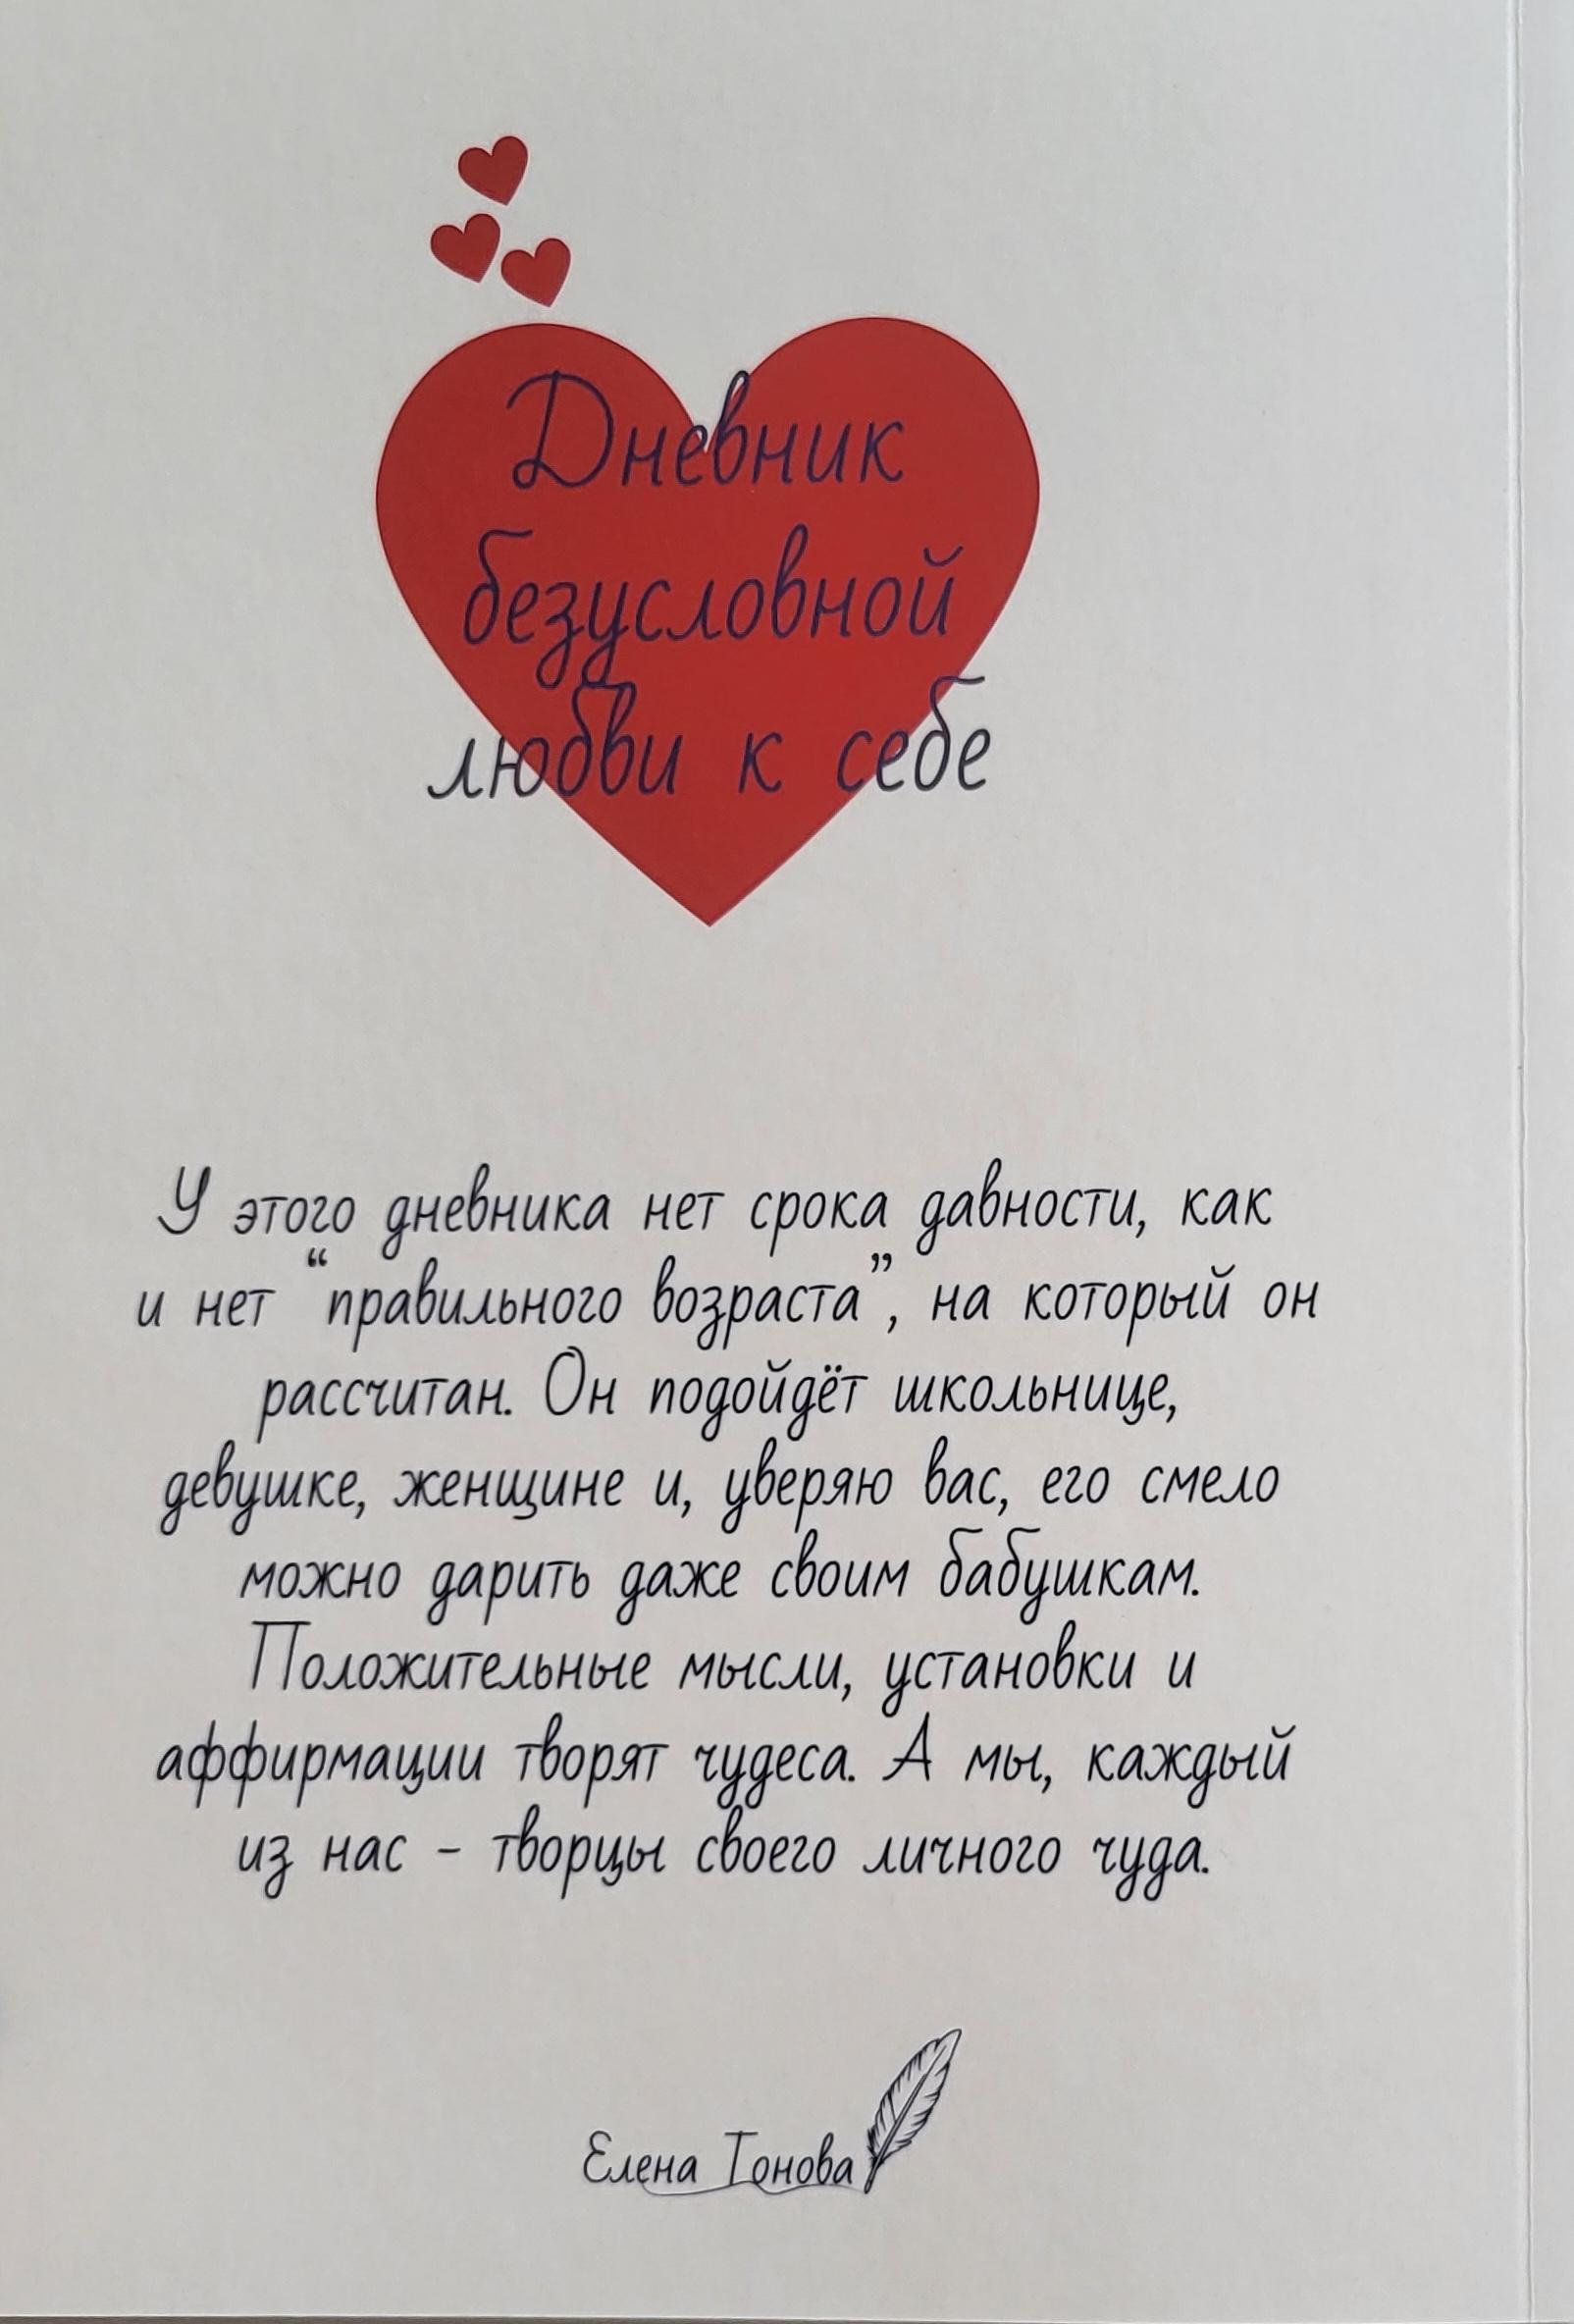 Дневник
безусловной
любви к себе
У этого дневника нет срока давности, как
и нет “правильного возраста”, на который он
рассчитан. Он подойдёт школьнице,
девушке, женщине и, уверяю вас, его смело
можно дарить даже своим бабушкам.
Положительные мысли, установки и
аффирмации творят чудеса. А мы, каждый
из нас - творцы своего личного чуда.
Елена Тонова